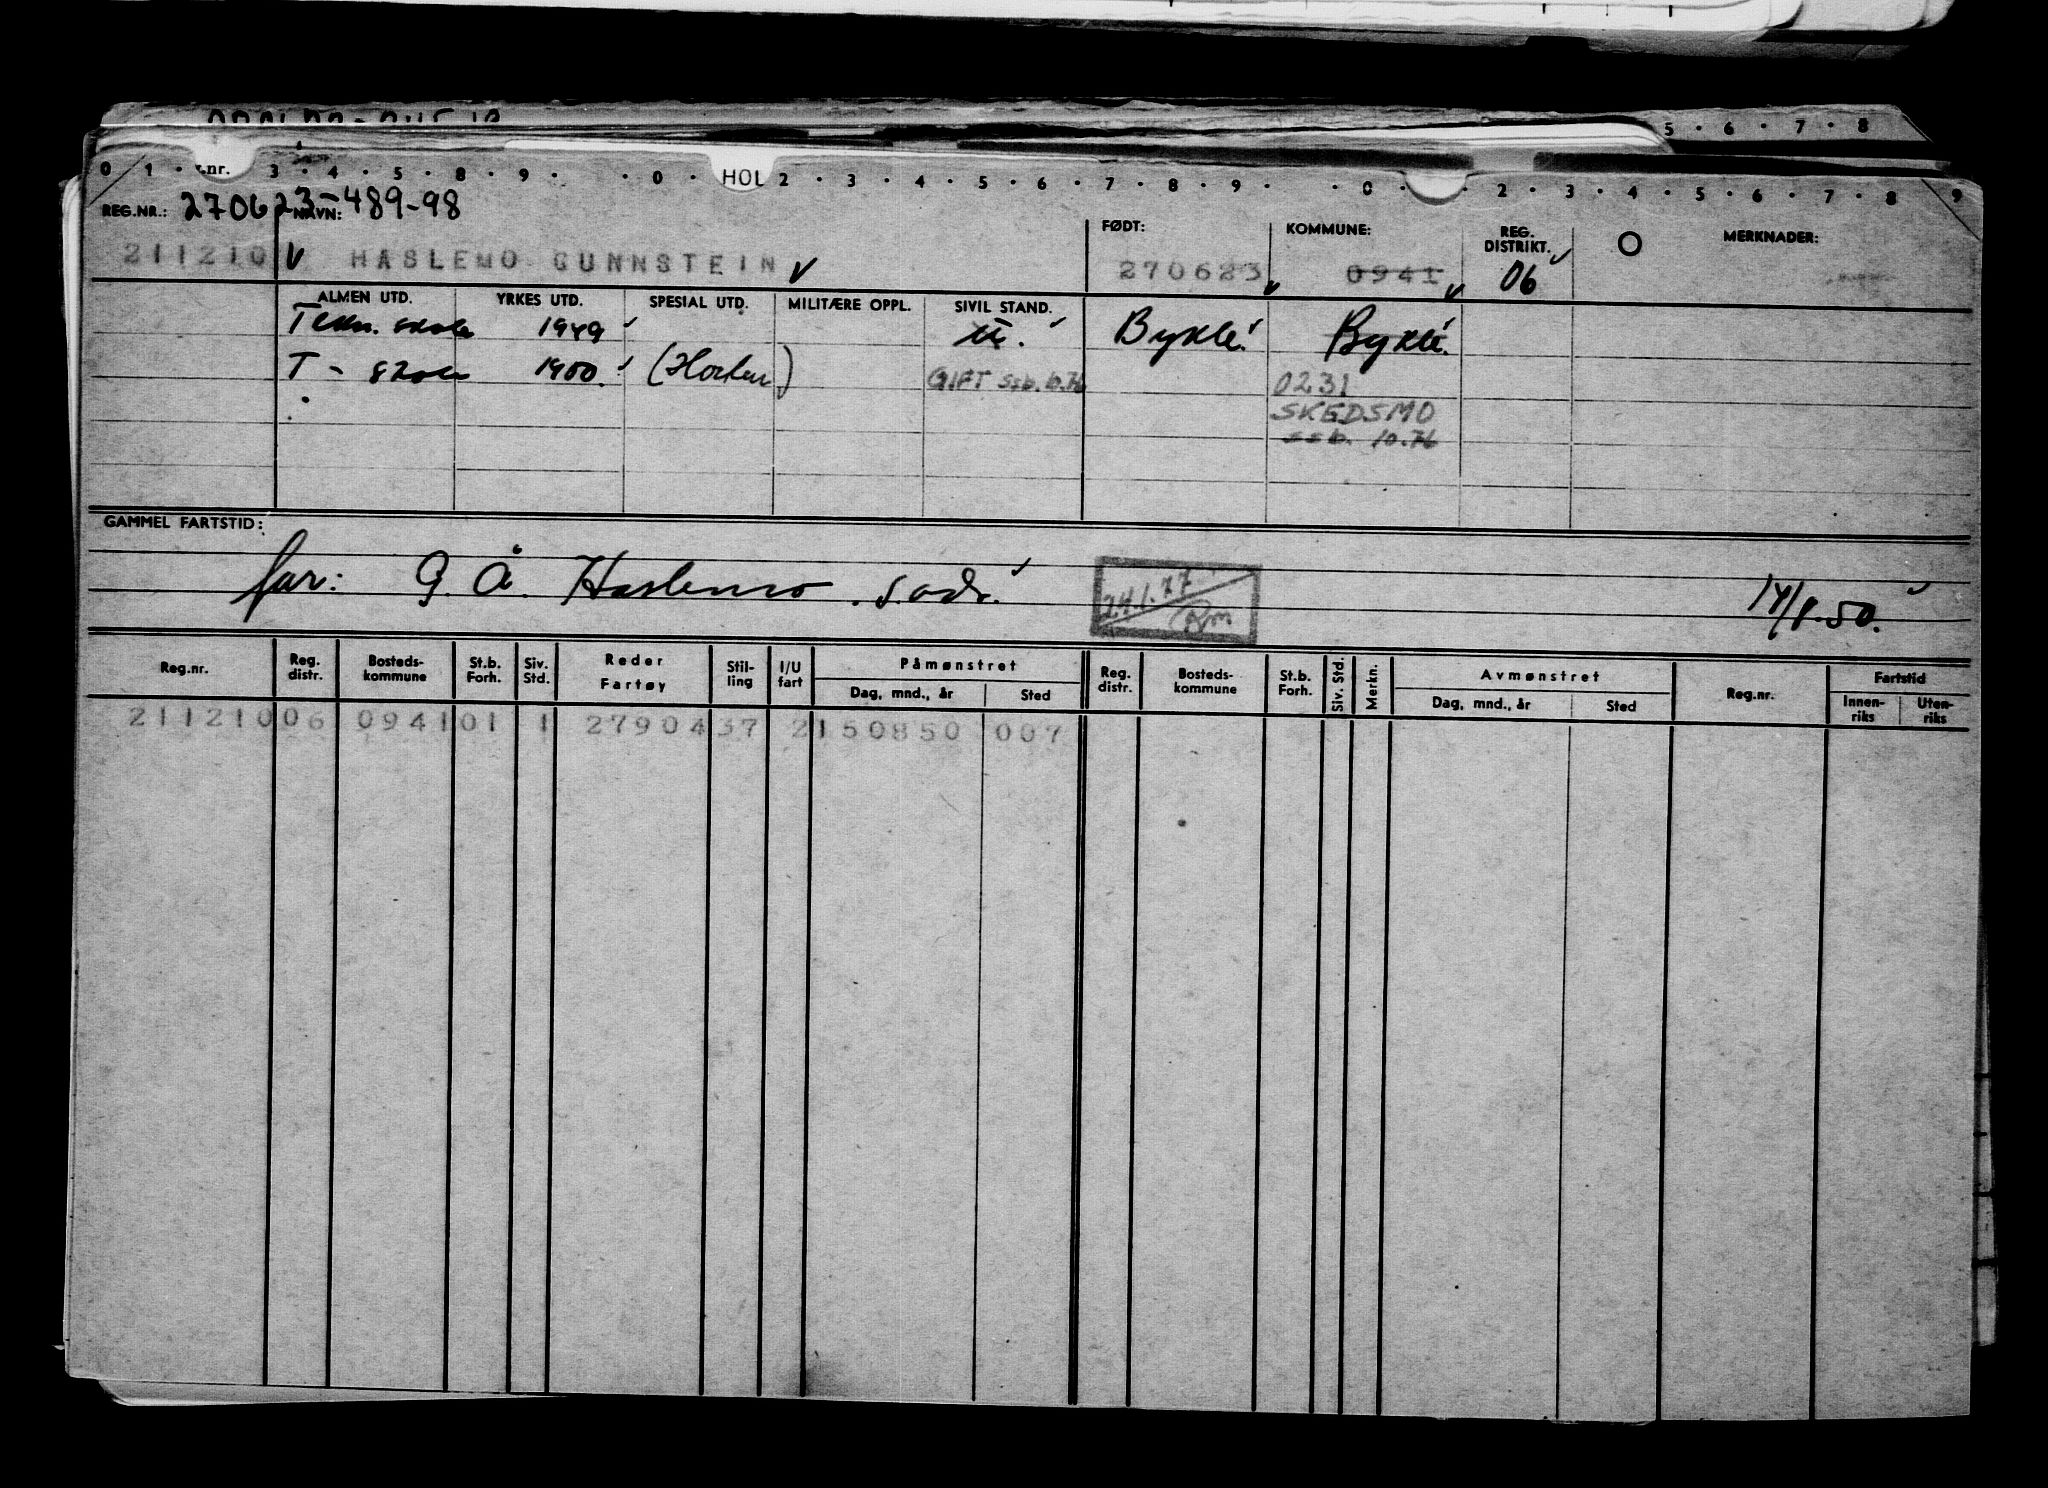 5 · 6 · 7 · 8
0 1 · r.nr. 3 · 4 · 5 · 8 · 9 · · 0 · HOL 2 · 3 · 4 · 5 · 6 · 7 · 8 · 9 · · 0 · 2 · 3 · 4 · 5 · 6 · 7 · 8 9
REG.NR.: 270623-489-98 NAVN:
FØDT: KOMMUNE: REG. DISTRIKT. MERKNADER:
211210 HASLEMO GUNNSTEIN 270623 0941 06
ALMEN UTD. YRKES UTD. SPESIAL UTD. MILITÆRE OPPL. SIVIL STAND.
Tekn. skole 1949 Bykle Bykle
T - skole 1950 (Horten) GIFT ssb. 10.76 0231
SKEDSMO
ssb. 10.76
GAMMEL FARTSTID:
far: G. Å. Haslemo. sads. 24.1.77 14/8.50.
Reg.nr. Reg. distr. Bosteds-kommune St.b. Forh. Siv. Std. Reder Fartøy Stil-ling I/U fart Påmønstret Dag, mnd., år Sted Reg. distr. Bosteds-kommune St.b. Forh. Siv. Std. Merkn. Avmønstret Dag, mnd., år Sted Reg.nr. Fartstid Innen-riks Uten-riks
211210 06 0941 01 1 27904 37 2 150850 007